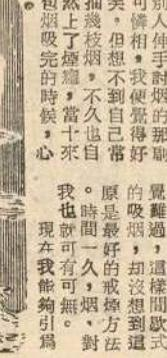 別伸手討烟的那副
可憐相，我便覺得好
笑。但想不到自己常
抽幾枝烟，不久也自
然上了烟癮，當十來
包烟吸完的時候，心
覺難過，這樣間歇式
的吸烟，却沒想到這
原是最好的戒烟方法
。時間一久，烟、對
我也就可有可無。
現在我能夠引爲